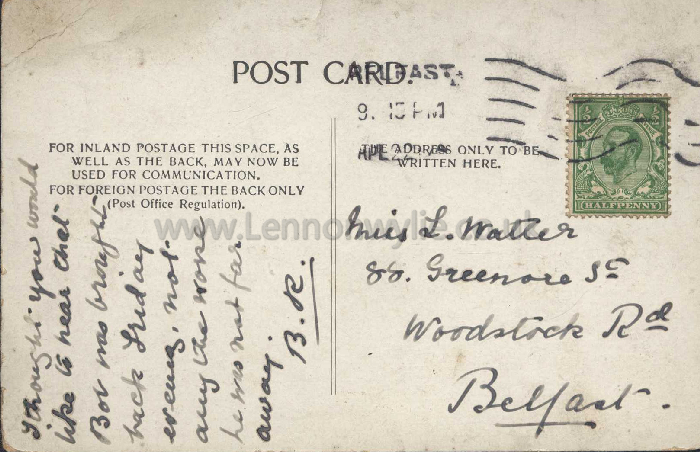 POST CARD.
BELFAST
9. 15 PM
APL 22
FOR INLAND POSTAGE THIS SPACE, AS
WELL AS THE BACK, MAY NOW BE
USED FOR COMMUNICATION.
FOR FOREIGN POSTAGE THE BACK ONLY
(Post Office Regulation).
THE ADDRESS ONLY TO BE
WRITTEN HERE.
HALFPENNY
www.Lennonwylie.co.uk
I thought you would
like to hear that
Bob was brought
back Friday
evening, not
any the worse
he was not far
away.
B. R.
Miss L. Watter
88. Greenore St
Woodstock Rd
Belfast.